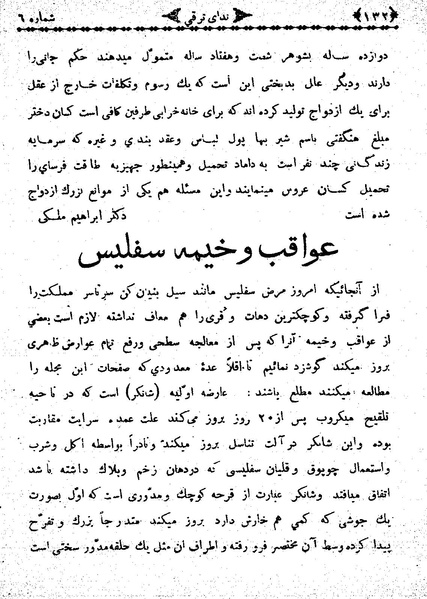 ﴿۱۳۲﴾ ندای ترقی شماره ٦
دوازده ساله بشوهر شصت وهفتاد ساله متمول میدهند حکم جانی را
دارند ودیگر علل بدبختی این است که یك رسوم وتکلفات خارج از عقل
برای یك ازدواج تولید کرده اند که برای خانه خرابی طرفین کافی است کسان دختر
مبلغ هنگفتی باسم شیر بها پول لباس وعقد بندی و غیره که سرمایه
زندگانی چند نفر است به داماد تحمیل وهمینطور جهیزیه طاقت فرسای را
تحمیل کسان عروس مینمایند واین مسئله هم یکی از موانع بزرك ازدواج
شده است دکتر ابراهیم ملکی
عواقب وخیمه سفلیس
از آنجائیکه امروز مرض سفلیس مانند سیل بنیان کن سرتاسر مملکت را
فرا گرفته وکوچکترین دهات وقری را هم معاف نداشته لازم است بعضی
از عواقب وخیمهٔ آنرا که پس از معالجه سطحی ورفع تمام عوارض ظاهری
بروز میکند گوشزد نمائیم تا اقلاً عدهٔ معدودی که صفحات این مجله را
مطالعه میکنند مطلع باشند : عارضه اولیه (شانکر) است که در ناحیه
تلقیح میکروب پس از ۲۰ روز بروز میکند علت عمده سرایت مقاربت
بوده واین شانکر در آلت تناسل بروز میکند ونادراً بواسطه اکل وشرب
واستعمال چوپوق وقلیان سفلیسی که دردهان زخم وپلاك داشته باشد
اتفاق میافتد وشانکر عبارت از قرحه کوچك ومدوری است که اول بصورت
یك جوشی که کمی هم خارش دارد بروز میکند متدرجاً بزرك وتقرح
پیدا کرده وسط آن مختصر فرو رفته و اطراف ان مثل یك حلقه مدور سختی است